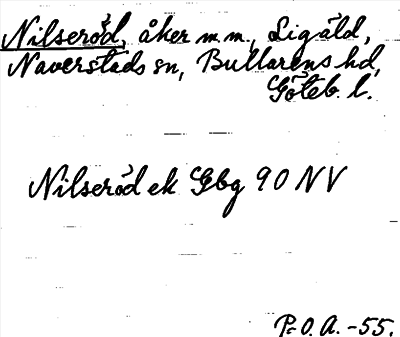 Nilseröd, åker m.m., Ligäld,
Naverstads sn, Bullarens hd,
Göteb. l.
Nilseröd ek Gbg 90 NV
P.O.A. -55.